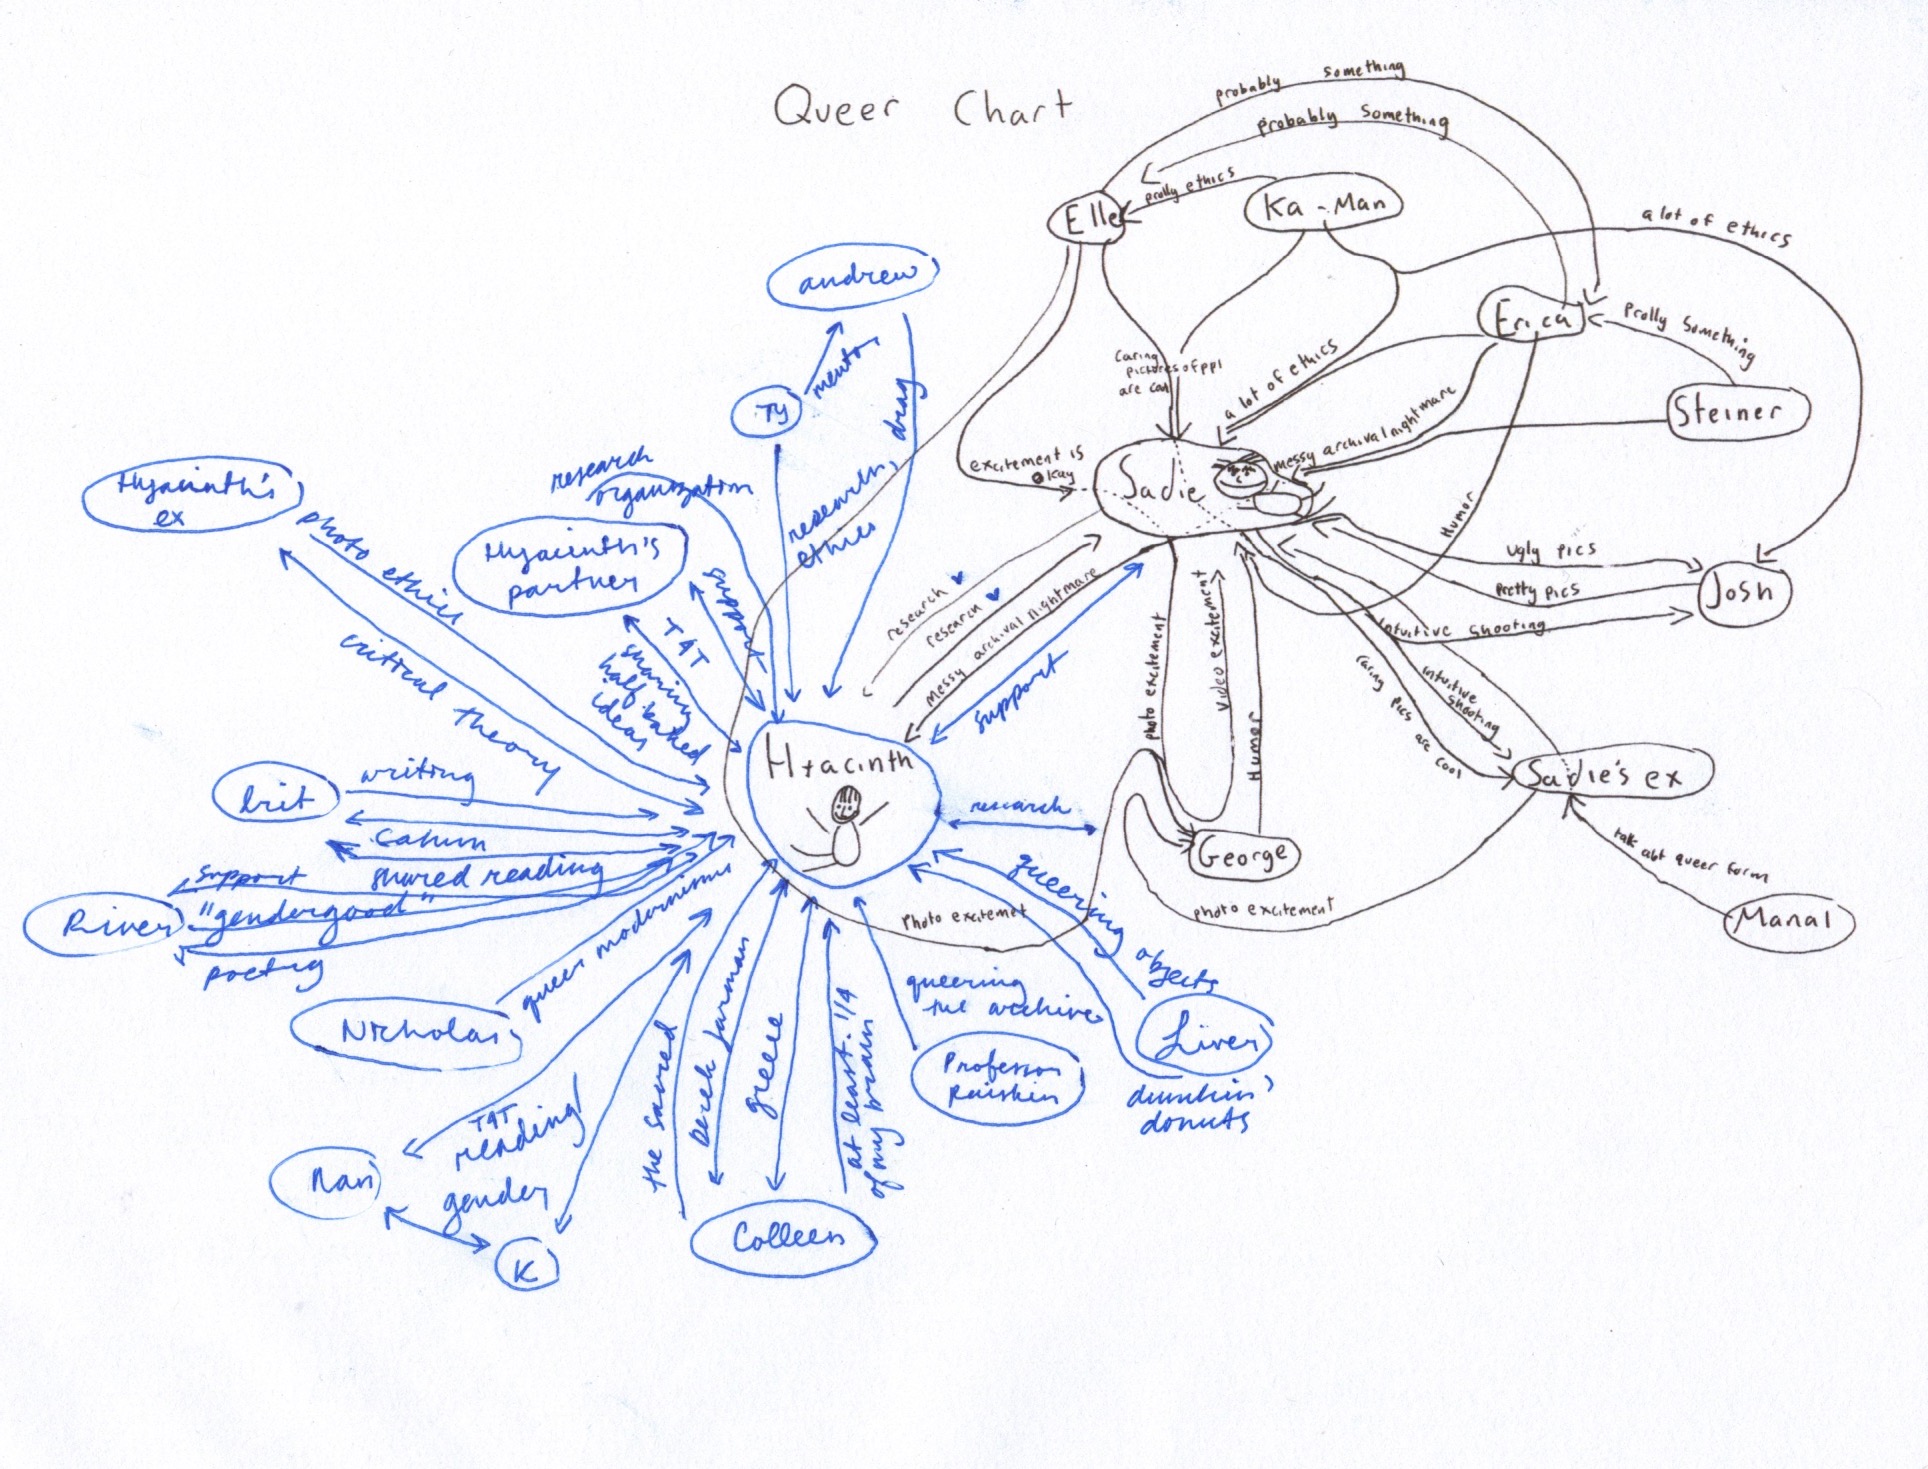 Queer Chart
probably something
probably something
prolly ethics
Elle
Ka-Man
a lot of ethics
andrew
Erica
Prolly Something
mentor
Ty
drag
caring
pictures of ppl
are cool
a lot of ethics
Steiner
messy archival nightmare
research
organization
excitement is
okay
Sadie
Hyacinth's
ex
photo ethics
research,
ethics
Humor
Hyacinth's
partner
support
T4T
sharing
half baked
ideas
critical theory
research
research
messy archival nightmare
support
photo excitement
video excitement
Humor
ugly pics
pretty pics
intuitive shooting
Josh
caring pics are cool
intuitive
shooting
Hyacinth
Sadie's ex
writing
brit
cahun
shared reading
research
George
talk abt queer form
Manal
support
"gendergood"
River
poetry
photo excitemet
photo excitement
queering objects
queer modernisms
Nicholas
queering
the archive
Professor
Raiskin
Liver
dunkin'
donuts
the sacred
derek jarman
greece
at least 1/4
of my brain
T4T
reading/
gender
Ran
K
Colleen